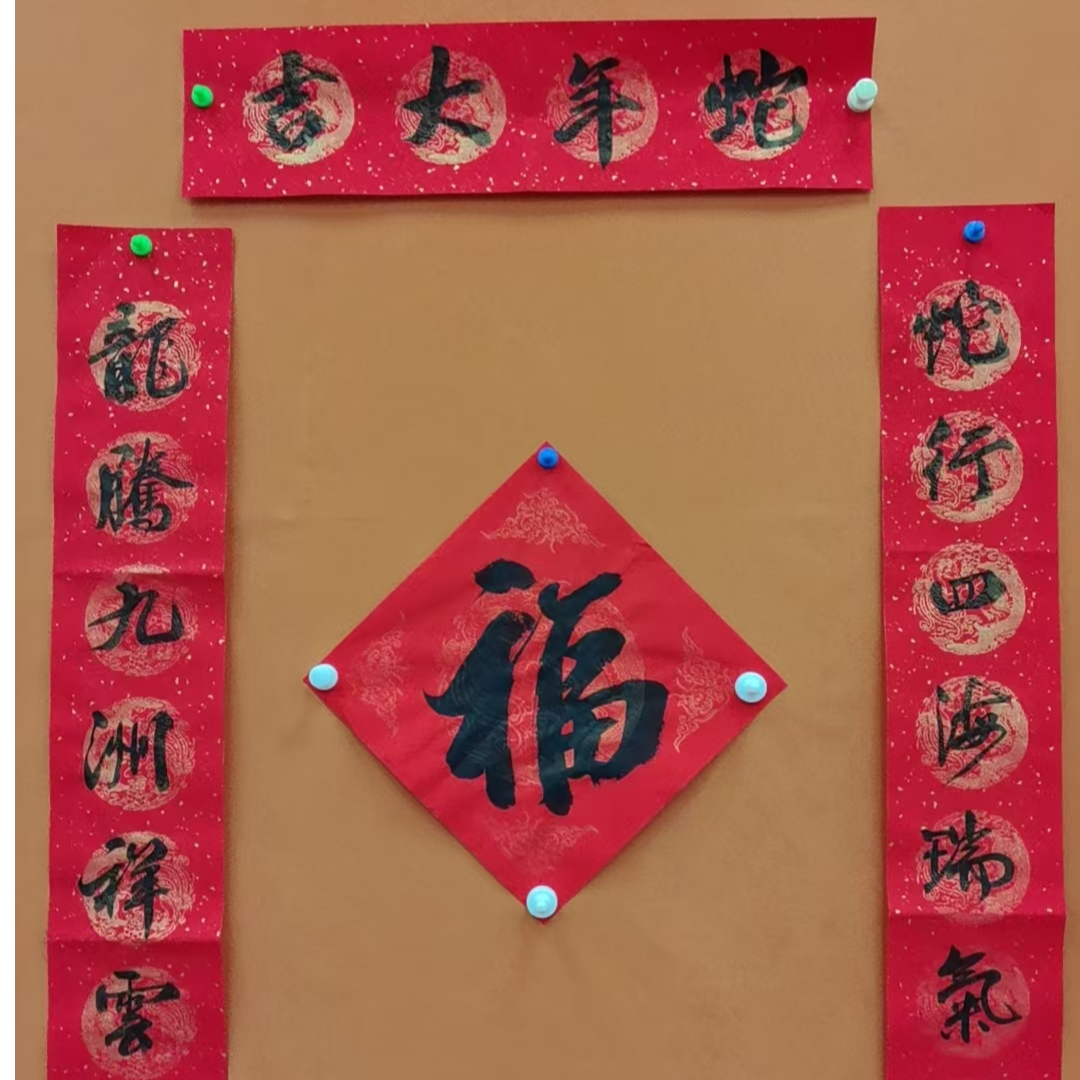 蛇年大吉
蛇行四海瑞氣
龍騰九洲祥雲
福